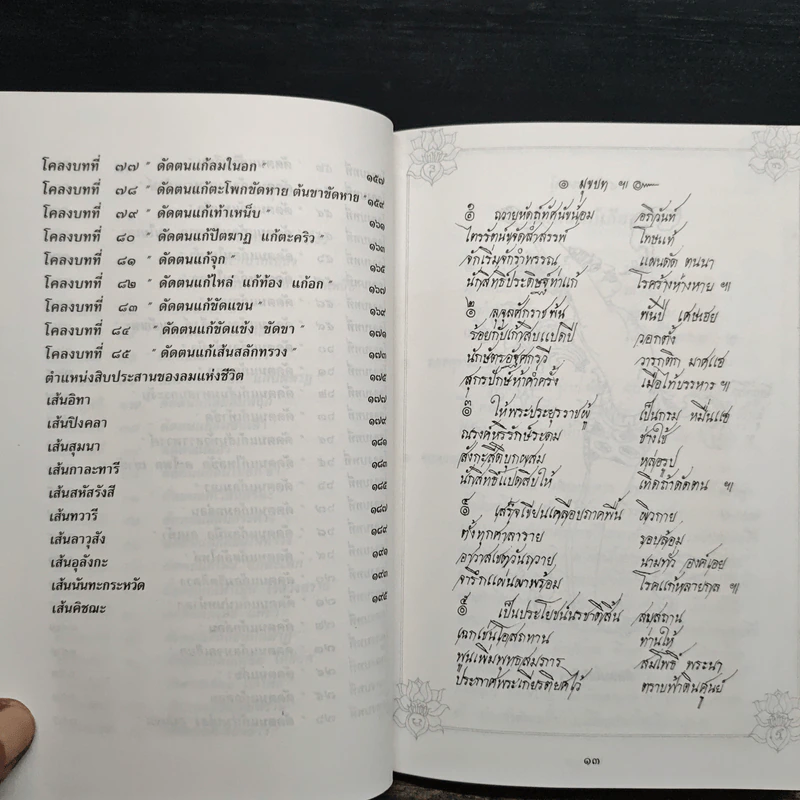 โคลงบทที่ ๗๗ " ดัดตนแก้ลมในอก " ๑๕๗
โคลงบทที่ ๗๘ " ดัดตนแก้ตะโพกขัดหาย ต้นขาขัดหาย " ๑๕๙
โคลงบทที่ ๗๙ " ดัดตนแก้เท้าเหน็บ " ๑๖๑
โคลงบทที่ ๘๐ " ดัดตนแก้ปัตฆาฏ แก้ตะคริว " ๑๖๓
โคลงบทที่ ๘๑ " ดัดตนแก้จุก " ๑๖๕
โคลงบทที่ ๘๒ " ดัดตนแก้ไหล่ แก้ท้อง แก้อก " ๑๖๗
โคลงบทที่ ๘๓ " ดัดตนแก้ขัดแขน " ๑๖๙
โคลงบทที่ ๘๔ " ดัดตนแก้ขัดแข้ง ขัดขา " ๑๗๑
โคลงบทที่ ๘๕ " ดัดตนแก้เส้นสลักทรวง " ๑๗๓
ตำแหน่งสิบประสานของลมแห่งชีวิต ๑๗๕
เส้นอิทา ๑๗๗
เส้นปิงคลา ๑๗๙
เส้นสุมนา ๑๘๑
เส้นกาละทารี ๑๘๓
เส้นสหัสรังสี ๑๘๕
เส้นทวารี ๑๘๗
เส้นลาวุสัง ๑๘๙
เส้นอุลังกะ ๑๙๑
เส้นนันทะกระหวัด ๑๙๓
เส้นคิชฌะ ๑๙๕
๑ ถวายหัตถ์ทัศนัขน้อม อภิวันท์
ไตรรัตน โทษแท้
จักเริ่มจักร่ำพรรณ แผนดัด ตนนา
นักสิทธิ์ประดิษฐ์ท่าแก้ โรคร้างห่างหาย ๚
๒ ลุจุลศักราชพัน พันปี เศษเฮย
ร้อยกับเก้าสิบแปดปี วอกตั้ง
นักษัตรอัฐศก วารกติก มาศแฮ
สุกรปักษ์ห้าค่ำครั้ง เมื่อไท้บรรหาร ๚
๓ ให้พระประยุรราชผู้ เป็นกรม หมื่นแฮ
ณรงค์หริรักษ์รดม ช่างใช้
สังกะสีดีบุกผสม หล่อรูป
นักสิทธิ์แปดสิบให้ เทิดถ้าดัดตน ๚
๔ เสร็จเขียนเคลือบภาคพื้น ผิวกาย
ตั้งทุกศาลาราย ขอบล้อม
อาวาสเชตุวันถวาย นามทั่ว องค์เอย
จารึกแผ่นผาพร้อม โรคแก้หลายกล ๚
๕ เป็นประโยชน์นรชาติสิ้น สบสถาน
เฉกเช่นโอสถทาน ท่านให้
พูนเพิ่มพุทธสมภาร สมโพธิ์ พระนา
ประกาศพระเกียรติยศไว้ ตราบฟ้าดินศูนย์
๑๓